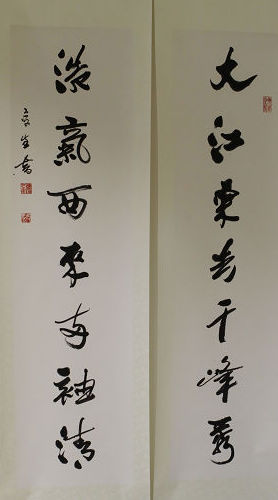 大江東去千峰秀
浩氣西來兩袖清